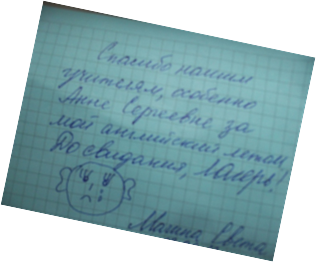 Спасибо нашим
учителям, особенно
Анне Сергеевне за
мой английский летом
До свидания, Лагерь!
Света